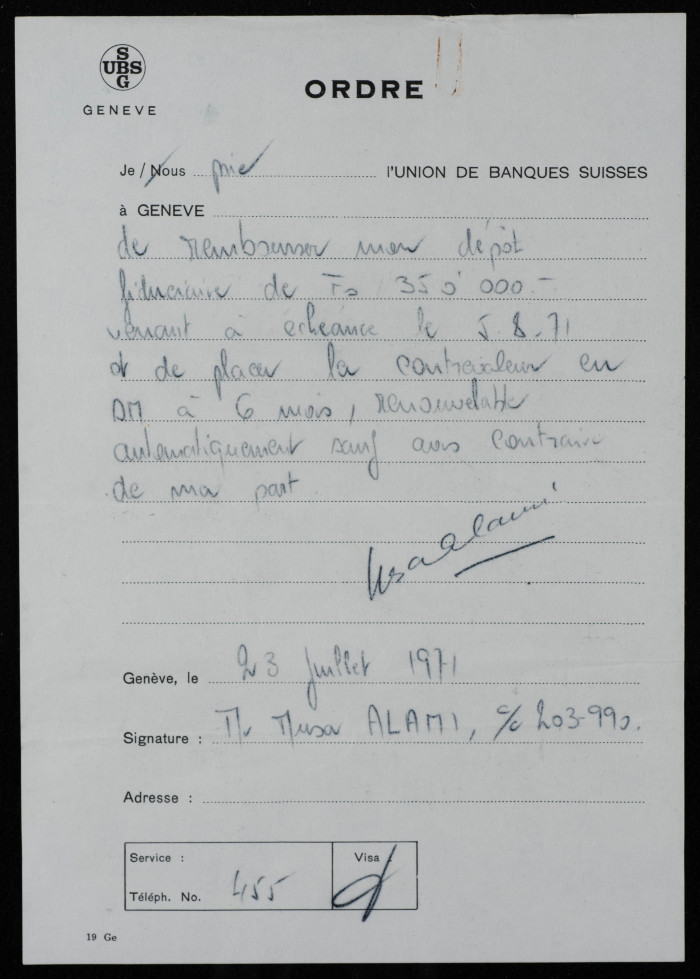 S
UBS
G
GENEVE
ORDRE
Je / Nous prie l'UNION DE BANQUES SUISSES
à GENEVE
de rembourser mon dépôt
fiduciaire de Fs 350'000.-
venant à échéance le 5.8.71
et de placer la contrevaleur en
DM à 6 mois, renouvelable
automatiquement sauf avis contraire
de ma part
Musa Alami
Genève, le 23 juillet 1971
Signature : Mr Musa ALAMI, c/c 203-990.
Adresse :
Service : Visa :
Téléph. No. 455
19 Ge